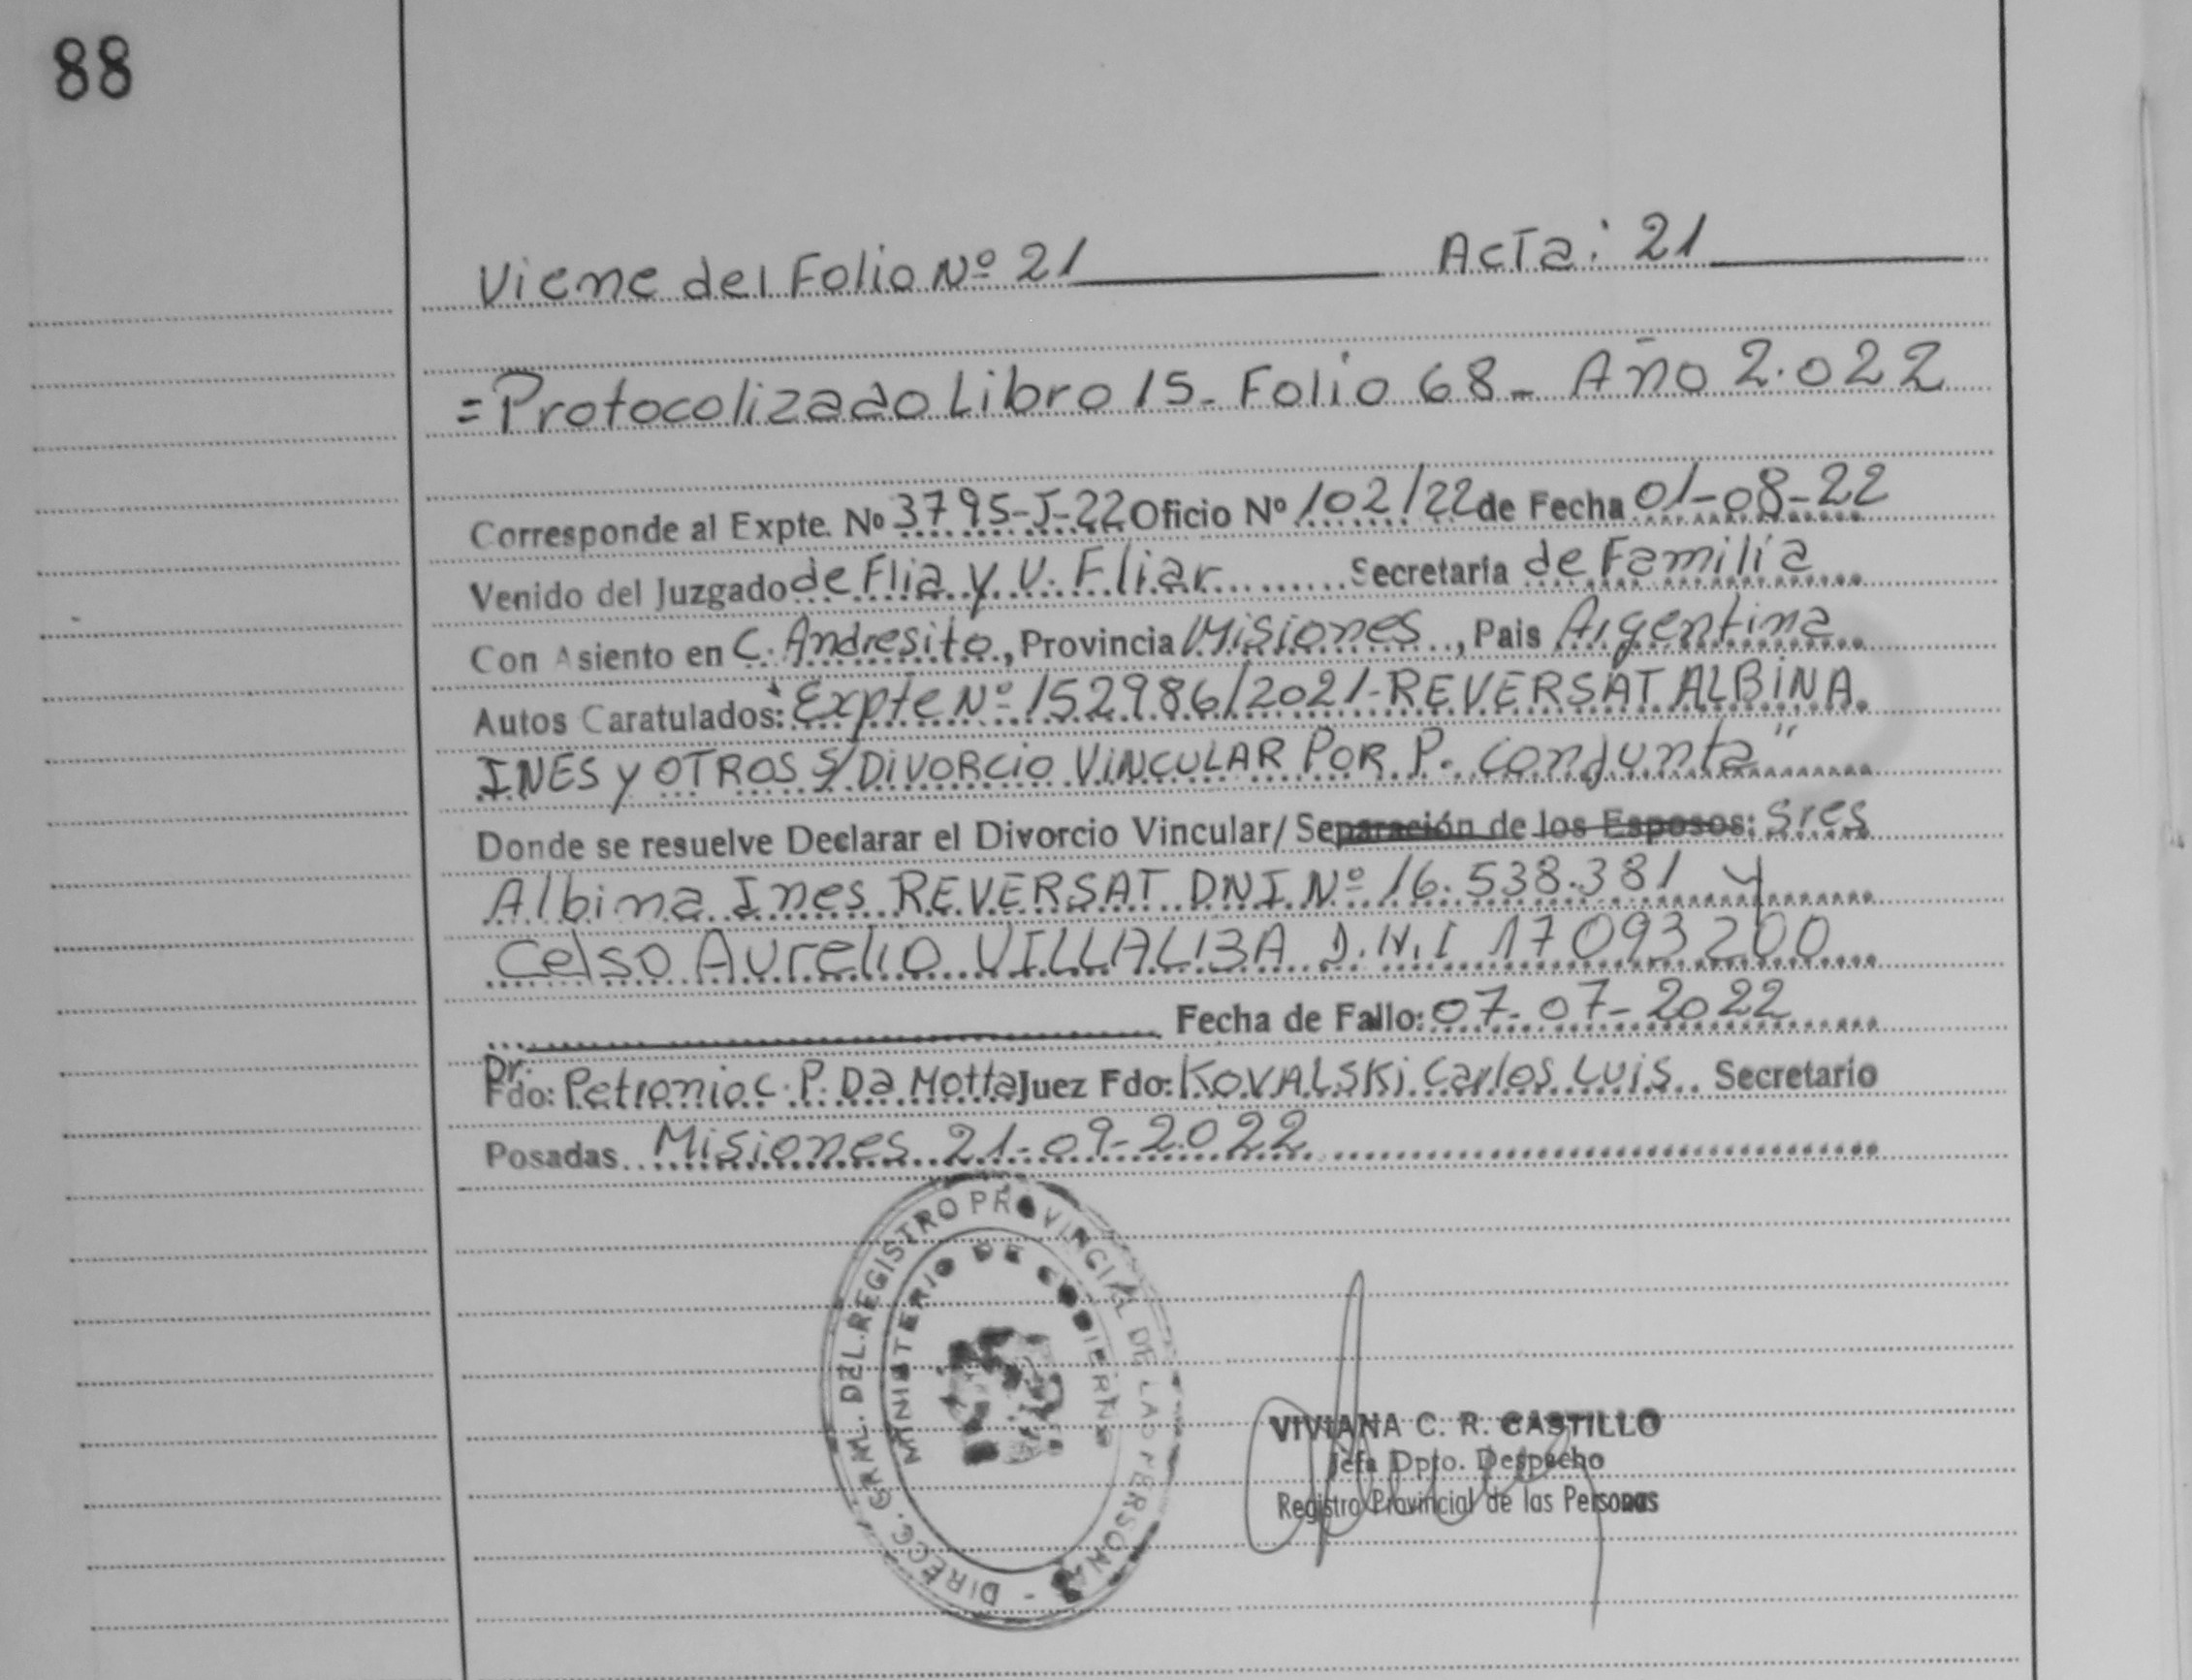 88
Viene del Folio Nº 21 Acta: 21
= Protocolizado Libro 15 - Folio 68 - Año 2.022
Corresponde al Expte. Nº 3795-J-22 Oficio Nº 102/22 de Fecha 01-08-22
Venido del Juzgado de Flia y V. Fliar Secretaría de Familia
Con Asiento en C. Andresito, Provincia Misiones, Pais Argentina
Autos Caratulados: "Expte Nº 152986/2021-REVERSAT ALBINA
INES y OTROS S/DIVORCIO VINCULAR POR P. Conjunta"
Donde se resuelve Declarar el Divorcio Vincular/ Separación de los Esposos: Sres
Albina Ines REVERSAT DNI Nº 16.538.381 y
Celso Aurelio VILLALBA D.N.I 17093200
Fecha de Fallo: 07-07-2022
Dr.
Fdo: Petronio C. P. Da Motta Juez Fdo: KOVALSKI Carlos Luis Secretario
Posadas Misiones 21-09-2022
DIRECC. GRAL. DEL REGISTRO PROVINCIAL DE LAS PERSONAS -
MINISTERIO DE GOBIERNO
VIVIANA C. R. CASTILLO
Jefa Dpto. Despacho
Registro Provincial de las Personas